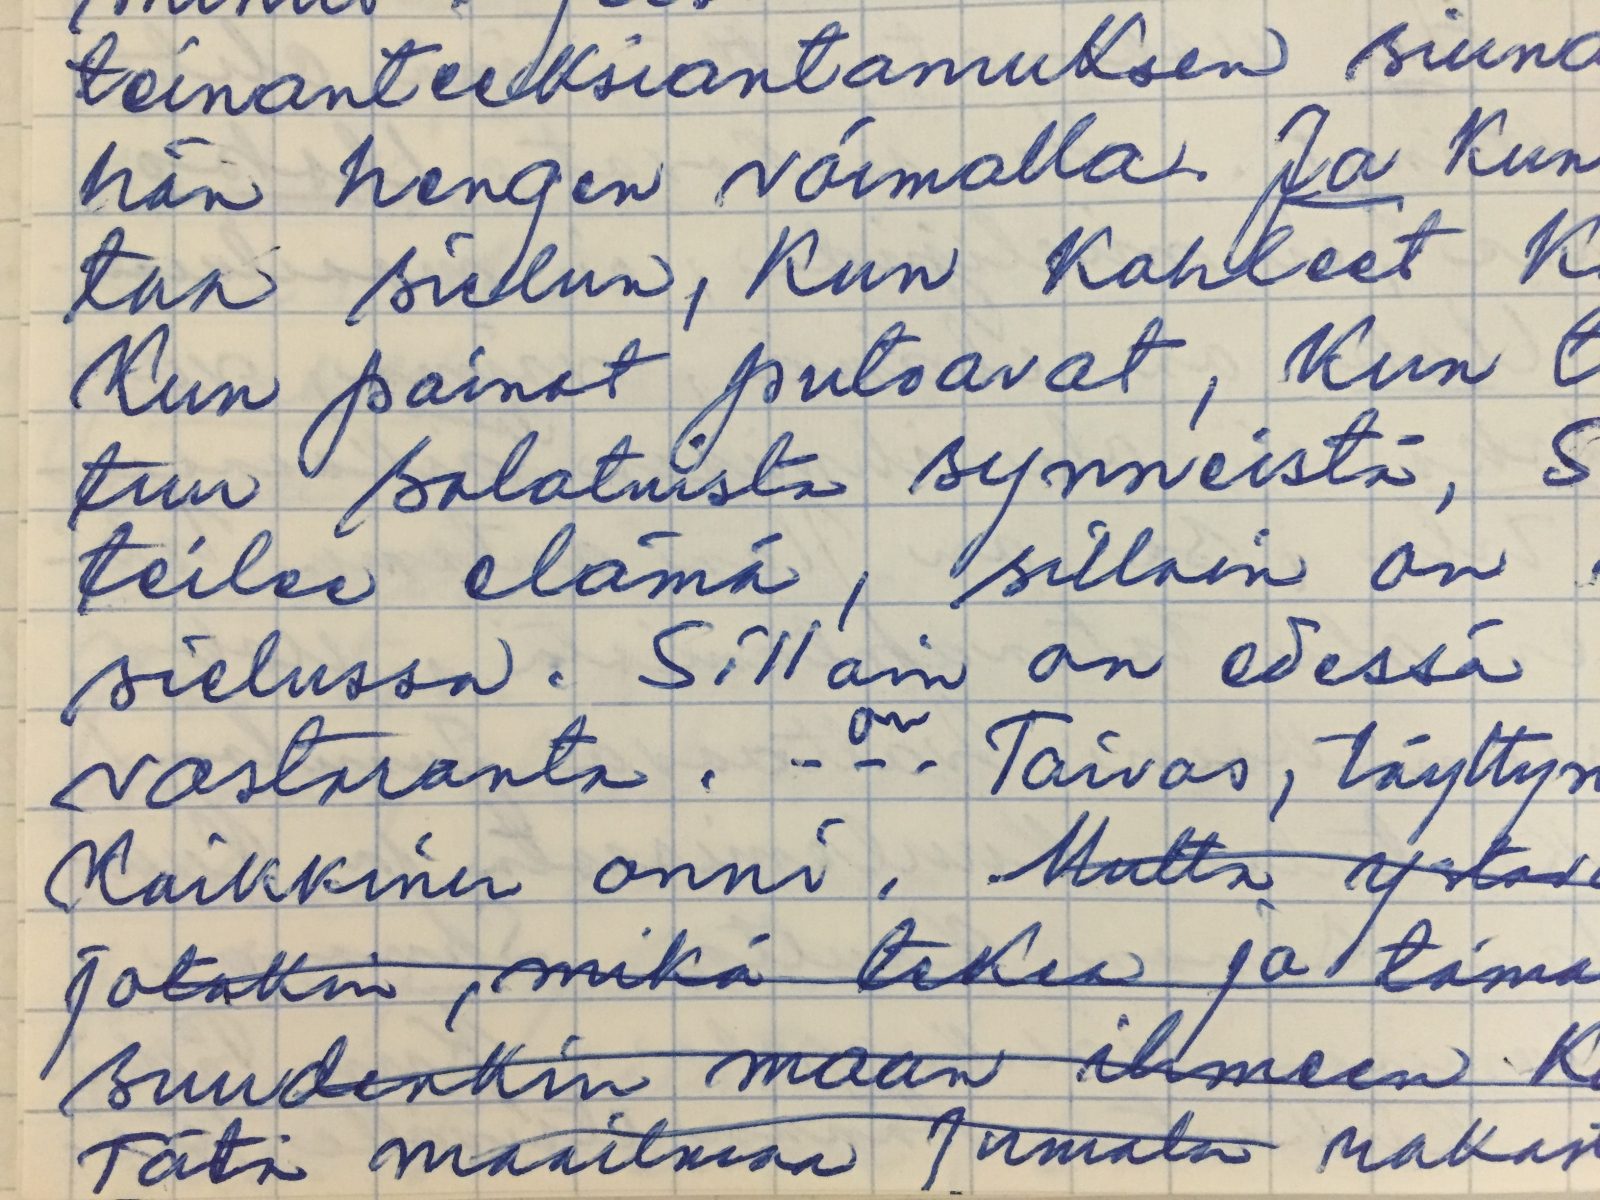 teinanteeksiantamuksen siuna
hän hengen voimalla. Ja kun
tan sielun, kun kahleet k
kun painot putoavat, kun t
tuu salatuista synneistä, s
teilee elämä, silloin on
sielussa. Silloin on edessä
vastaranta. - - - on Taivas, täytty
kaikkinen onni. Mutta ystävä
jotakin, mikä tekee jo täma
suudenkin maan ihmeen k
Tätä maailmaa Jumala rakas